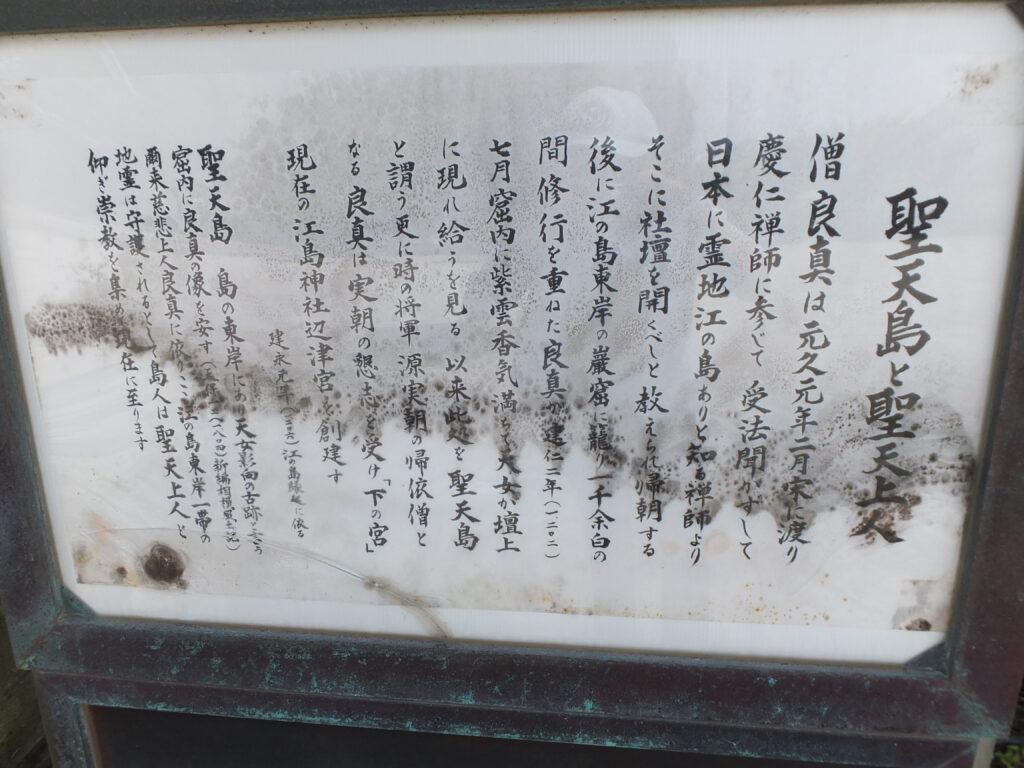 聖天島と聖天上人
僧良真は元久元年二月宋に渡り
慶仁禅師に参じて 受法聞かずして
日本に霊地江の島ありと知る禅師より
そこに社壇を開くべしと教えられ帰朝する
後に江の島東岸の巌窟に籠り一千余白の
間修行を重ねた良真が建仁二年(一二〇二)
七月窟内に紫雲香気満ちて天女が壇上
に現れ給うを見る 以来此処を聖天島
と謂う更に時の将軍源実朝の帰依僧と
なる 良真は実朝の懇志を受け「下の宮」
現在の江島神社辺津宮を創建す
建永元年(一二〇六)江の島縁起に依る
聖天島 島の東岸にあり天女影向の古跡と云う
窟内に良真の像を安す
爾来慈悲上人良真に依りここ江の島東岸一帯の
地霊は守護されるとして島人は聖天上人と
仰ぎ崇敬を集め現在に至ります